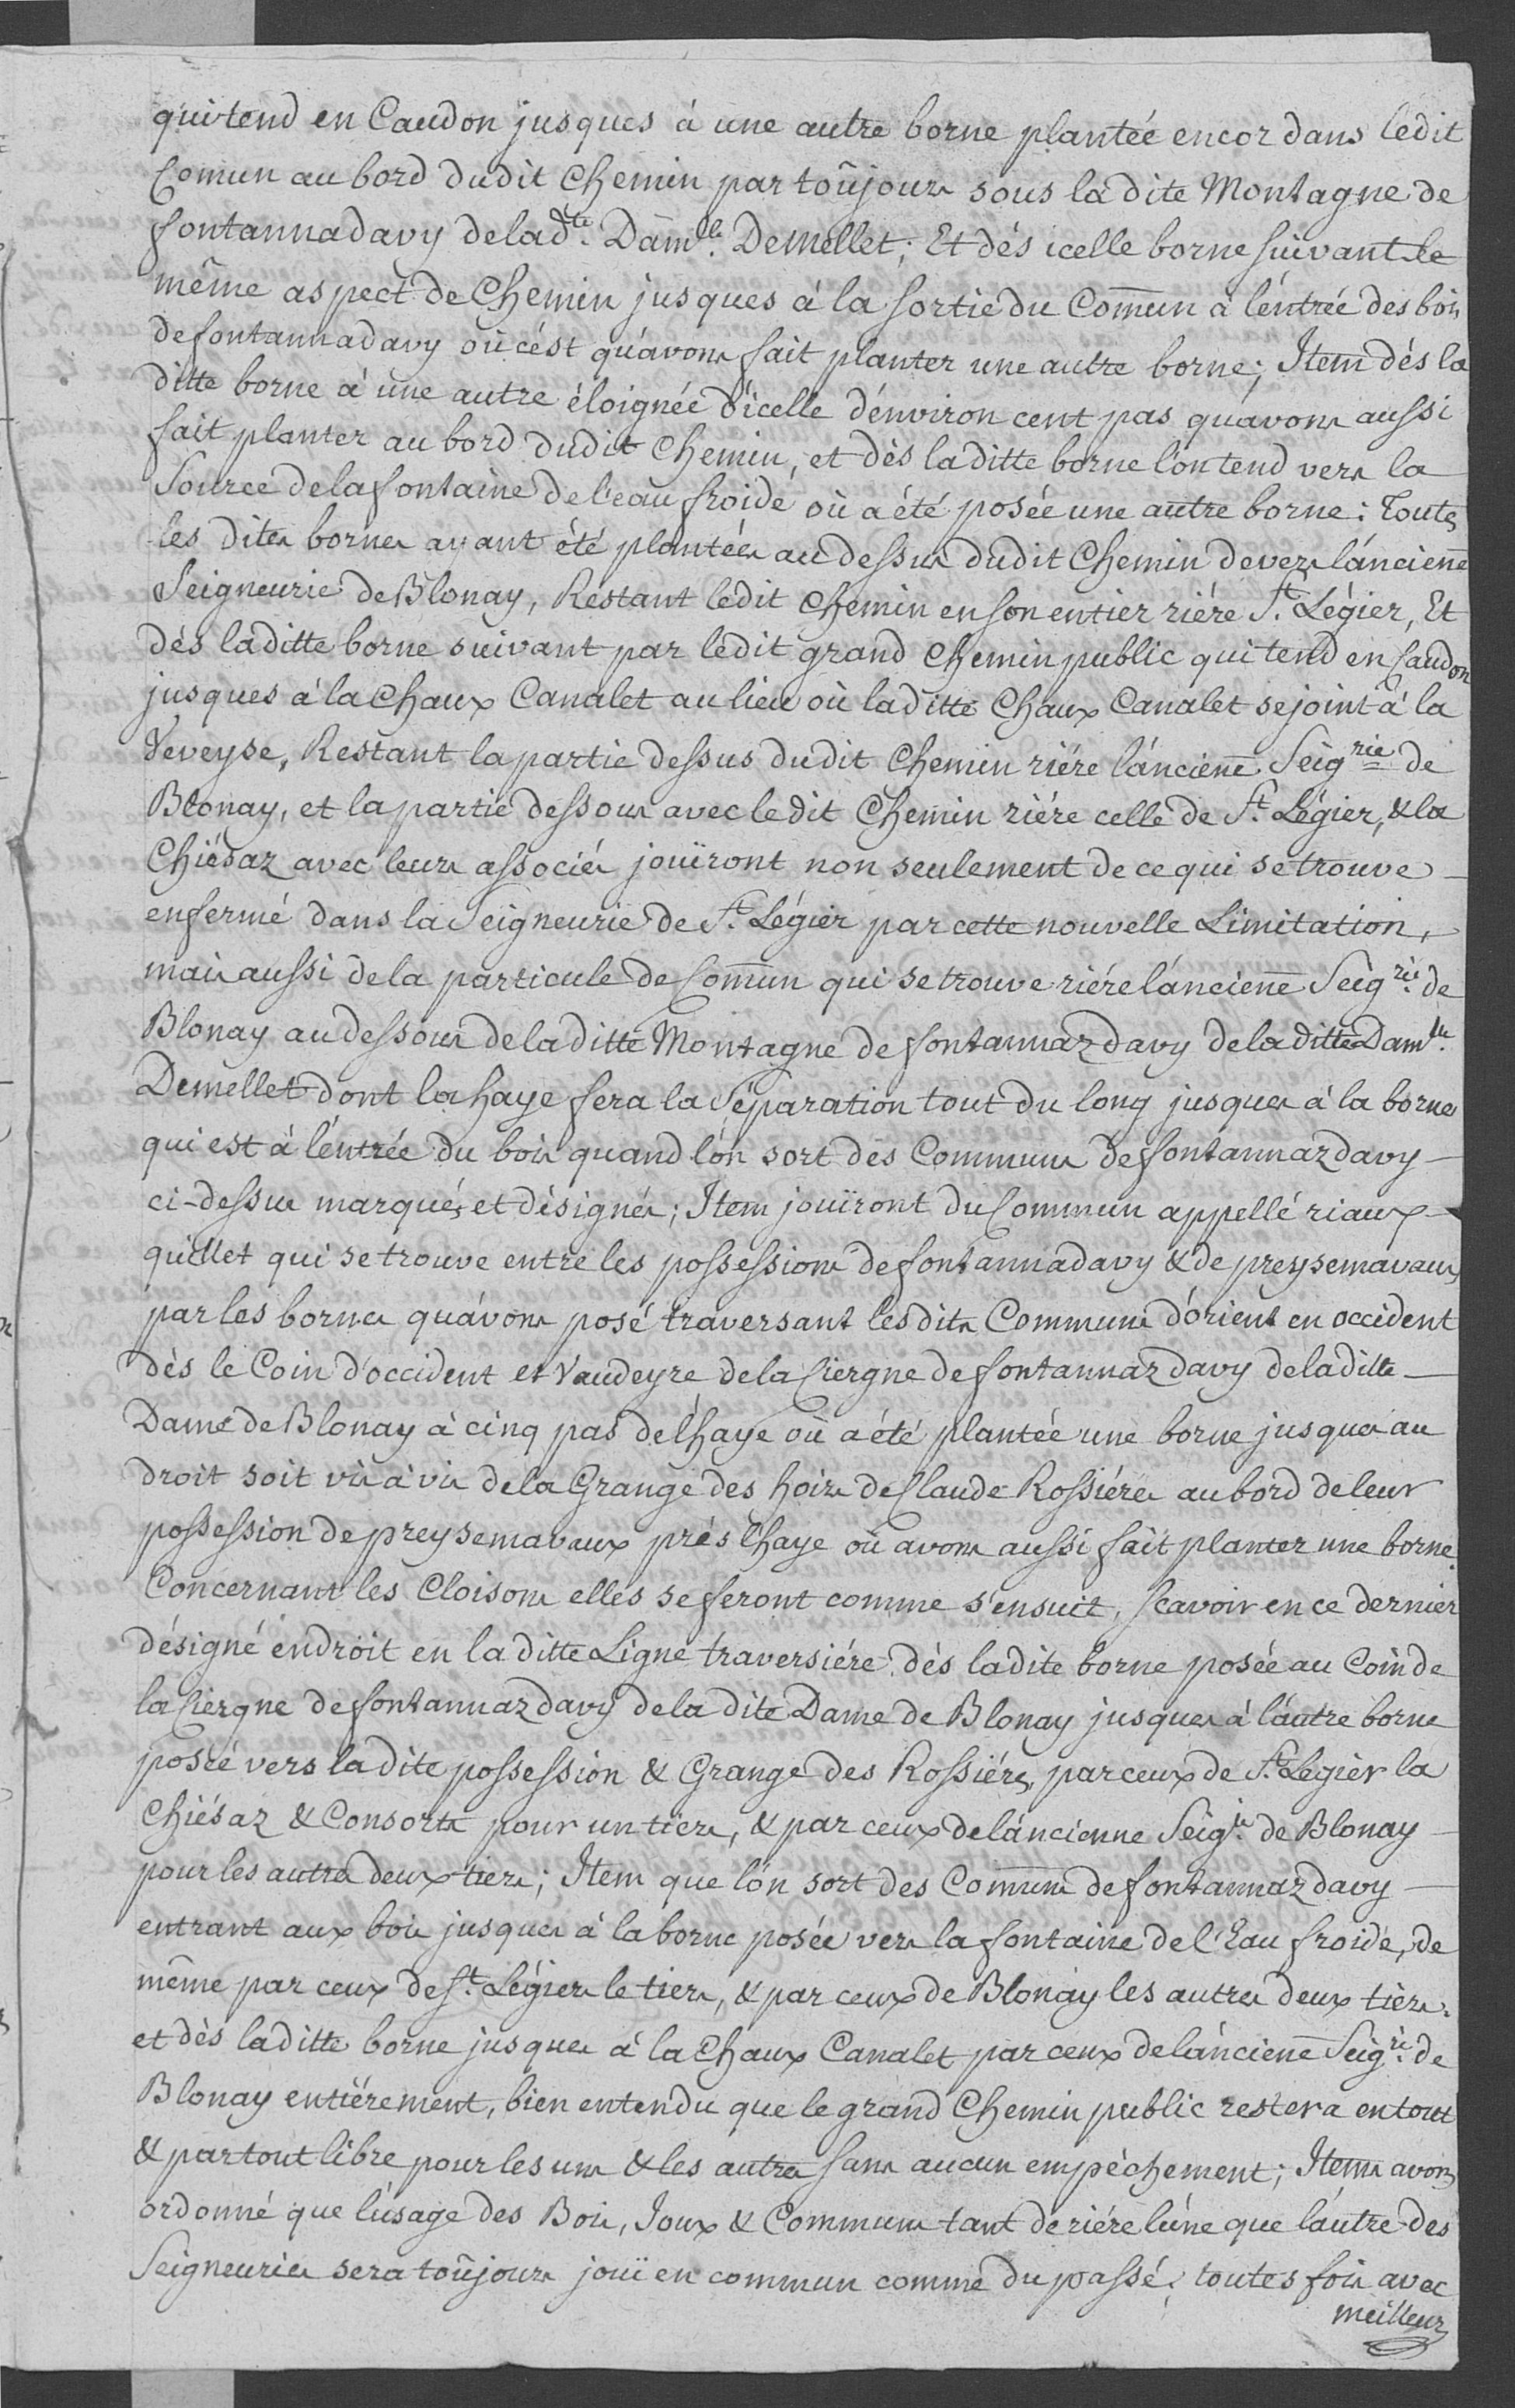 qui tend en Caudon jusques à une autre borne plantée encor dans ledit
Comun au bord dudit Chemin par toûjours sous la dite Montagne de
fontannadavy de lad.te Dam.lle Demellet; Et dés icelle borne suivant le
même aspect de Chemin jusques à la sortie du Com̄un à l'éntrée des bois
de fontannadavy où c'ést qu'ávons fait planter une autre borne; Item dés la
ditte borne à une autre éloignée d'icelle d'énviron cent pas qu'avons aussi
fait planter au bord dudit Chemin, et dès la ditte borne l'on tend vers la
Source de la fontaine de l'eau froide où a été posée une autre borne: Toutes
les dites bornes ayant été plantées au dessus dudit Chemin devers l'áncien̄e
Seigneurie de Blonay, Restant ledit Chemin en son entier riére S.t Légier, Et
dés la ditte borne suivant par ledit grand Chemin public qui tend en Caudon
jusques à la Chaux Canalet au lieu où la ditte Chaux Canalet se joint à la
Veveyse, Restant la partie dessus dudit Chemin riére l'áncien̄e Seig.rie de
Blonay, et la partie dessous avec le dit Chemin riére celle de S.t Légier, & la
Chiésaz avec leurs associés jouïront non seulement de ce qui se trouve
enfermé dans la Seigneurie de S.t Légier par cette nouvelle Limitation,
mais aussi de la particule de Com̄un qui se trouve riére l'áncien̄e Seig.rie de
Blonay au dessous de la ditte Montagne de fontannazdavy de la ditte Dam.lle
Demellet dont la haye fera la Séparation tout du long jusques à la borne
qui est à l'éntrée du bois quand l'ón sort des Communs de fontannazdavy
ci-dessus marqués et désignés; Item jouïront du Commun appellé riaux
quillet qui se trouve entre les possessions de fontannadavy & de preysemavaux
par les bornes qu'ávons posé traversant les dits Communs d'órient en occident
dès le Coin d'occident et Vaudeyre de la Ciergne de fontannazdavy de la ditte
Dame de Blonay à cinq pas de l'haye où a été plantée une borne jusques au
droit soit vis à vis de la Grange des hoirs de Claude Rossiéres au bord de leur
possession de preysemavaux prés l'haye où avons aussi fait planter une borne.
Concernant les Cloisons elles se feront comme s'ensuit, sçavoir en ce dernier
désigné endroit en la ditte Ligne traversiére dés la dite borne posée au Coin de
la Ciergne de fontannazdavy de la dite Dame de Blonay jusques à l'áutre borne
posée vers la dite possession & Grange des Rossiéres, par ceux de S.t Legier la
Chiésaz & Consorts pour un tiers, & par ceux de l'áncienne Seig.ie de Blonay
pour les autres deux tiers; Item que l'ón sort des Com̄uns de fontannazdavy
entrant aux bois jusques à la borne posée vers la fontaine de l'Eau froide, de
même par ceux de S.t Légier le tiers, & par ceux de Blonay les autres deux tiers.
et dès la ditte borne jusques à la Chaux Canalet par ceux de l'áncien̄e Seig.rie de
Blonay entiérement, bien entendu que le grand Chemin public restera en tout
& par tout libre pour les uns & les autres sans aucun empéchement; Item avons
ordonné que l'úsage des Bois, Joux & Communs tant de riére l'úne que l'áutre des
Seigneuries sera toûjours jouï en commun comme du passé, toutes fois avec
meilleur